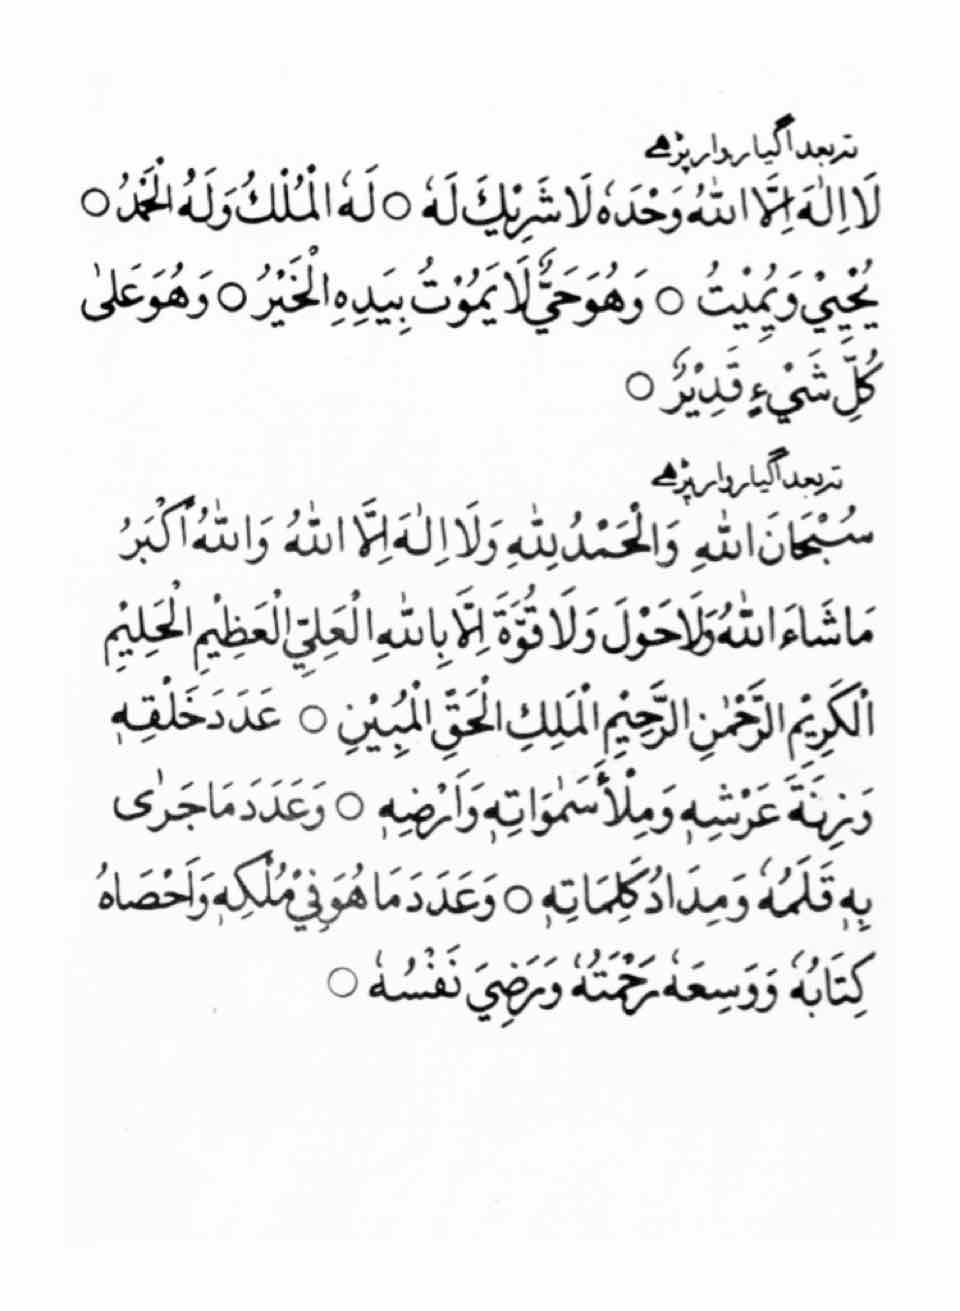 تربعد اگیار وار پڑھے
لَا اِلٰهَ اِلَّا اللّٰهُ وَحْدَهٗ لَا شَرِيْكَ لَهٗ ○ لَهُ الْمُلْكُ وَلَهُ الْحَمْدُ ○
يُحْيِيْ وَيُمِيْتُ ○ وَهُوَ حَيٌّ لَا يَمُوْتُ بِيَدِهِ الْخَيْرُ ○ وَهُوَ عَلىٰ
كُلِّ شَيْءٍ قَدِيْرٌ ○
تربعد اگیار وار پڑھے
سُبْحَانَ اللّٰهِ وَالْحَمْدُ لِلّٰهِ وَلَا اِلٰهَ اِلَّا اللّٰهُ وَاللّٰهُ اَكْبَرُ
مَا شَاءَ اللّٰهُ وَلَا حَوْلَ وَلَا قُوَّةَ اِلَّا بِاللّٰهِ الْعَلِيِّ الْعَظِيْمِ الْحَلِيْمِ
الْكَرِيْمِ الرَّحْمٰنِ الرَّحِيْمِ الْمَلِكِ الْحَقِّ الْمُبِيْنِ ○ عَدَدَ خَلْقِهٖ
وَزِنَةَ عَرْشِهٖ وَمِلْأَ سَمٰوَاتِهٖ وَاَرْضِهٖ ○ وَعَدَدَ مَا جَرٰى
بِهٖ قَلَمُهٗ وَمِدَادُ كَلِمَاتِهٖ ○ وَعَدَدَ مَا هُوَ فِيْ مُلْكِهٖ وَاَحْصَاهُ
كِتَابُهٗ وَوَسِعَهٗ رَحْمَتُهٗ وَرَضِيَ نَفْسُهٗ ○